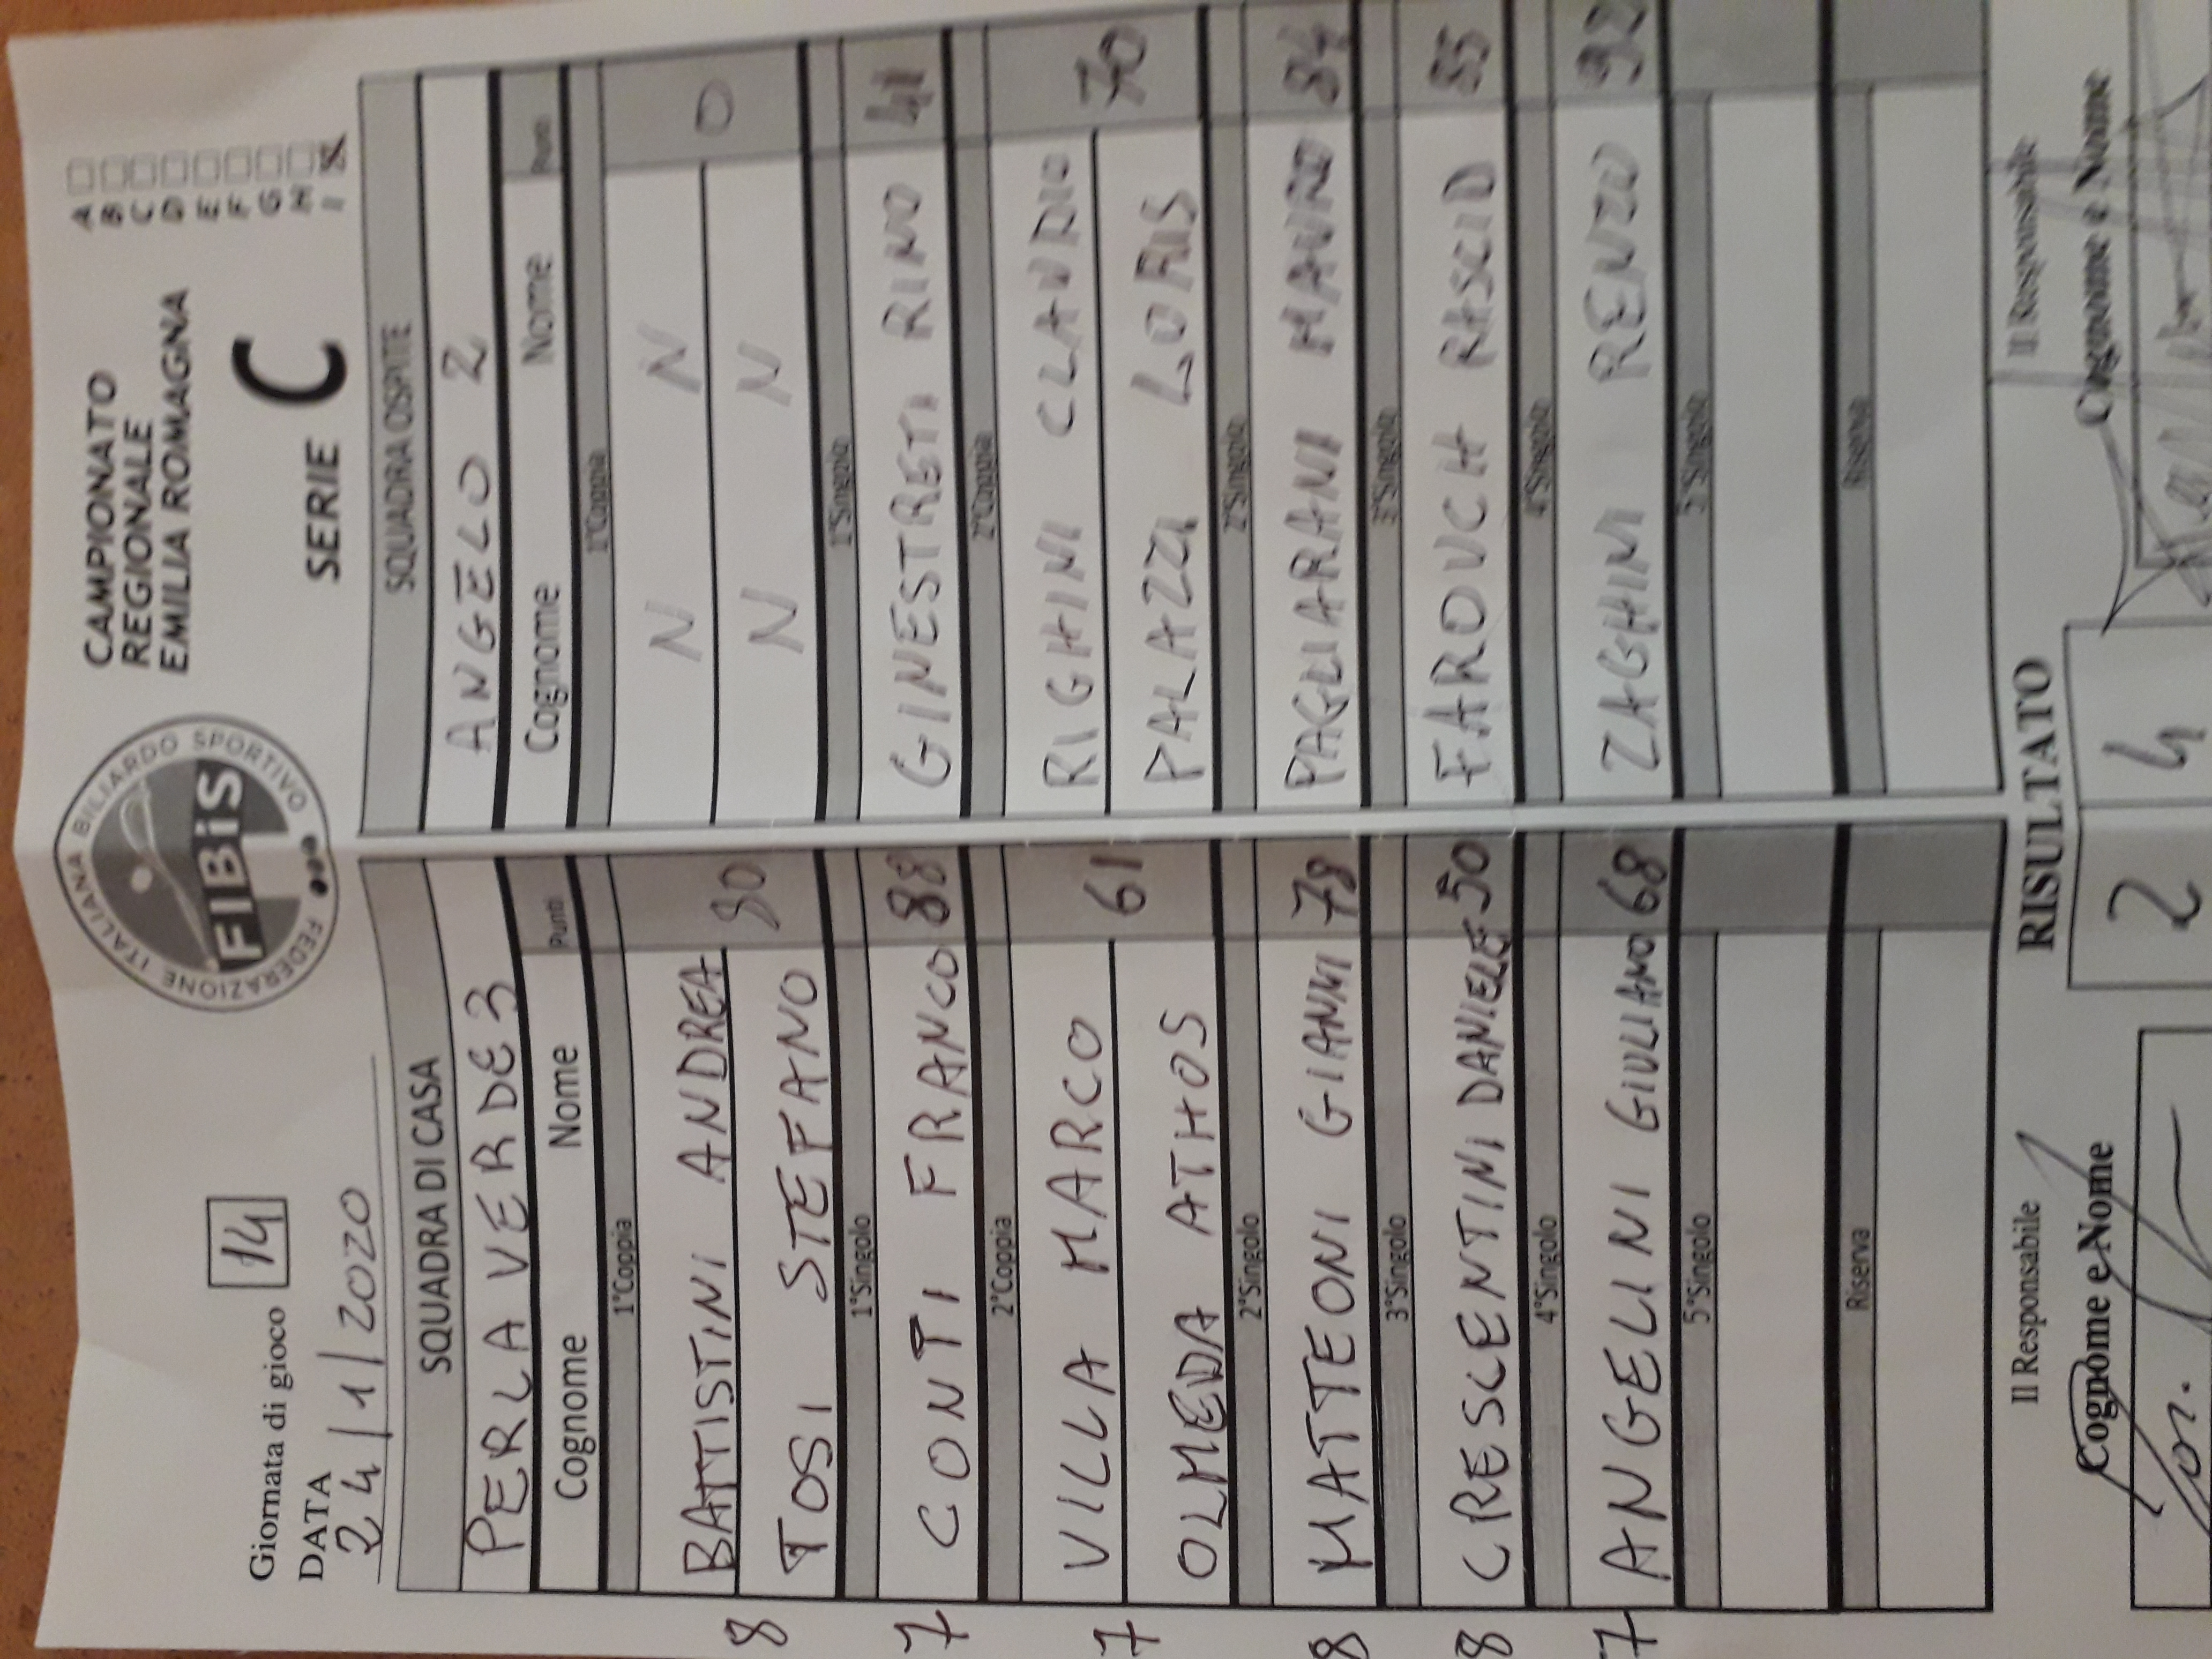 Giornata di gioco 14
DATA
24/1/2020
FEDERAZIONE ITALIANA BILIARDO SPORTIVO
FIBiS
CAMPIONATO
REGIONALE
EMILIA ROMAGNA
SERIE C
A
B
C
D
E
F
G
H
I
SQUADRA DI CASA SQUADRA OSPITE
PERLA VERDE 3 ANGELO 2
Cognome Nome Punti Cognome Nome Punti
1°Coppia 1°Coppia
BATTISTINI ANDREA N N
8 80 0
TOSI STEFANO N N
1°Singolo 1°Singolo
7 CONTI FRANCO 88 GINESTRETI RINO 41
2°Coppia 2°Coppia
VILLA MARCO RIGHINI CLAUDIO
7 61 70
OLMEDA ATHOS PALAZZI LORIS
2°Singolo 2°Singolo
8 MATTEONI GIANNI 78 PAGLIARANI MAURO 84
3°Singolo 3°Singolo
8 CRESCENTINI DANIELE 50 FAROUCH RASCID 85
4°Singolo 4°Singolo
7 ANGELINI GIULIANO 68 ZAGHINI RENZO 92
5°Singolo 5°Singolo
Riserva Riserva
Il Responsabile RISULTATO Il Responsabile
Cognome e Nome 2 4 Cognome e Nome